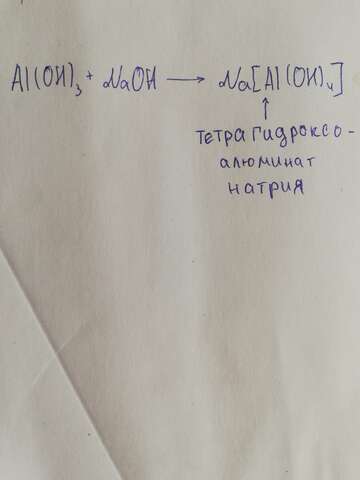 Al(OH)₃ + NaOH → Na[Al(OH)₄]
↑
тетрагидроксо-
алюминат
натрия